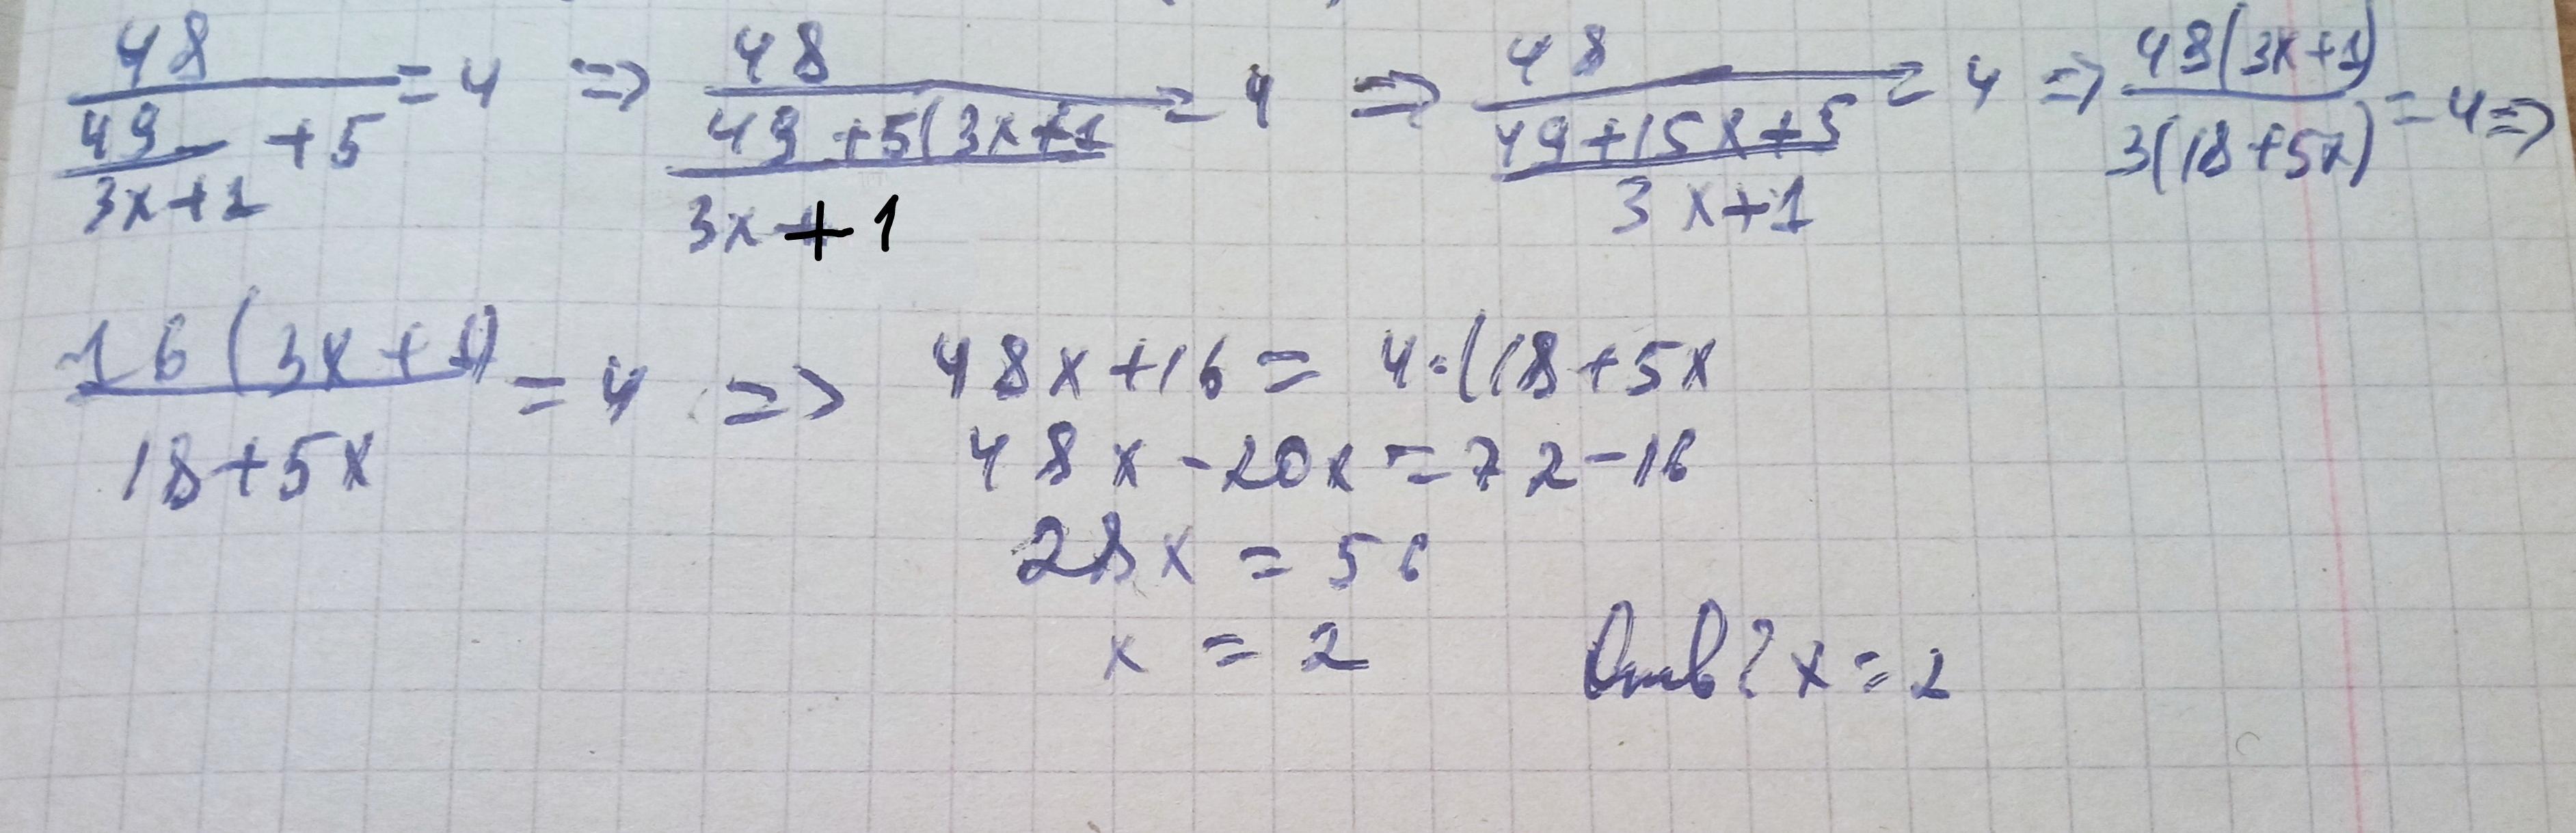 48/(49/(3x+1) + 5) = 4 => 48/((49+5(3x+1)/(3x+1)) = 4 => 48/((49+15x+5)/(3x+1)) = 4 => 48(3x+1)/3(18+5x) = 4 =>
16(3x+1)/(18+5x) = 4 => 48x+16 = 4·(18+5x
48x-20x=72-16
28x = 56
x = 2 Отв: x=2